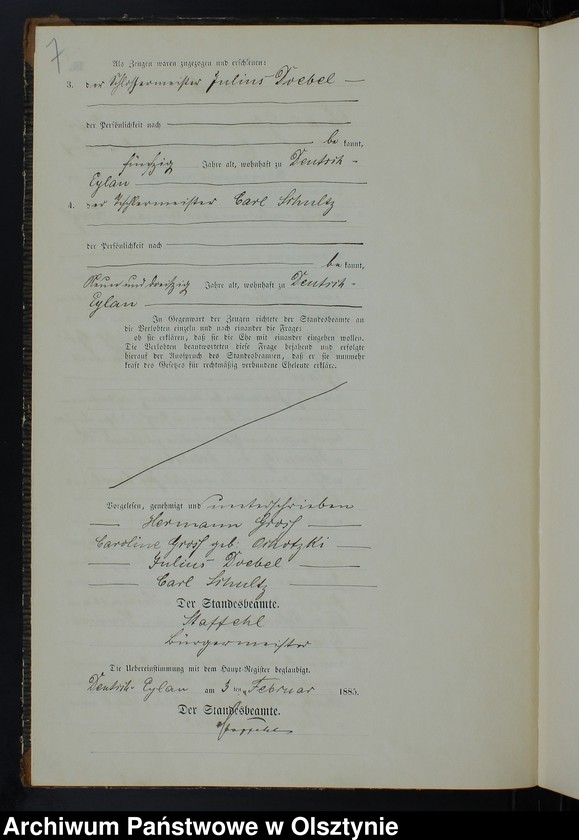 7
Als Zeugen waren zugezogen und erschienen:
3. der Schlossermeister Julius Doebel
der Persönlichkeit nach
be kannt,
fünfzig Jahre alt, wohnhaft zu Deutsch-
Eylau
4. der Carl Schultz
der Persönlichkeit nach
be kannt,
Neun und dreißig Jahre alt, wohnhaft zu Deutsch-
Eylau
In Gegenwart der Zeugen richtete der Standesbeamte an
die Verlobten einzeln und nach einander die Frage:
ob sie erklären, daß sie die Ehe mit einander eingehen wollen.
Die Verlobten beantworteten diese Frage bejahend und erfolgte
hierauf der Ausspruch des Standesbeamten, daß er sie nunmehr
kraft des Gesetzes für rechtmäßig verbundene Eheleute erkläre.
Vorgelesen, genehmigt und unterschrieben
Hermann Groß
Caroline Groß geb.
Julius Doebel
Carl Schultz
Der Standesbeamte.
Staffehl
Bürgermeister
Die Uebereinstimmung mit dem Haupt-Register beglaubigt.
Deutsch-Eylau am 3 ten Februar 1885.
Der Standesbeamte.
Staffehl
Archiwum Państwowe w Olsztynie